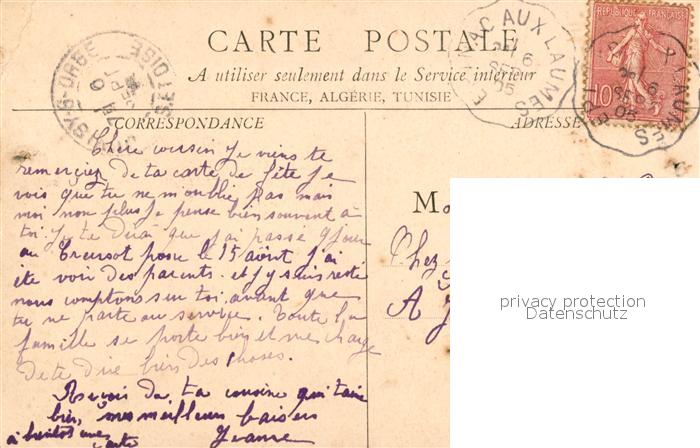 CARTE POSTALE
A utiliser seulement dans le Service intérieur
FRANCE, ALGÉRIE, TUNISIE
CORRESPONDANCE
ADRESSE
RÉPUBLIQUE FRANÇAISE
10
AUX LAUMES
6
SEPT
05
Chère cousin je viens te
remercier de ta carte de fête je
vois que tu ne m'oublie pas mais
moi non plus je pense bien souvent à
toi. Je te dirai que j'ai passé 9 jour
au Creusot pour le 15 août j'ai
été voir des parents et j'y suis resté
nous comptons sur toi avant que
tu ne parte au service. Toute la
famille se porte bien et me charge
de te dire bien des choses.
Revoir de ta cousine qui t'aime
bien, mes meilleurs baisers
à bientôt une carte
Jeanne
Chez
A
privacy protection
Datenschutz